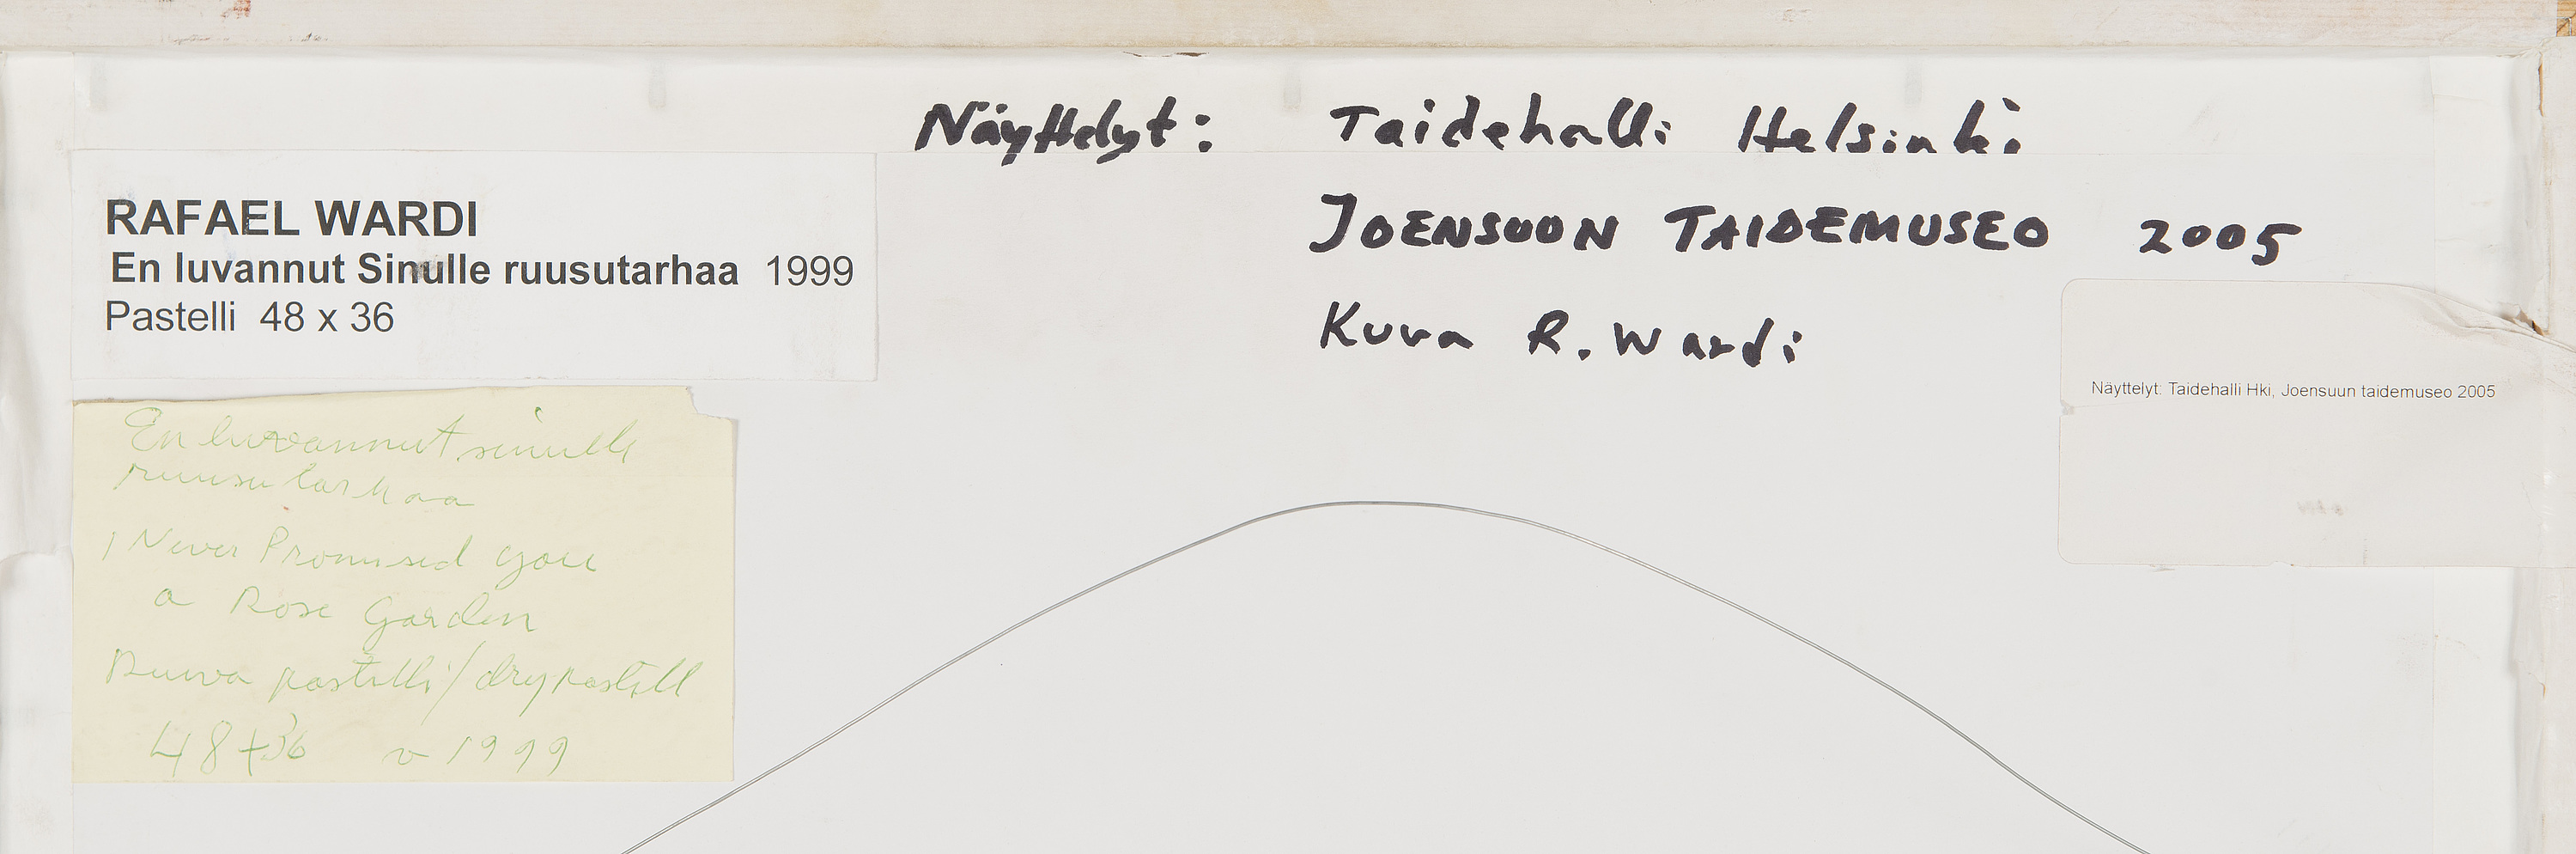 Näyttelyt: Taidehalli Helsinki
JOENSUUN TAIDEMUSEO 2005
Kuva R. Wardi
RAFAEL WARDI
En luvannut Sinulle ruusutarhaa 1999
Pastelli 48 x 36
En luvannut sinulle
ruusutarhaa
I Never Promised you
a Rose Garden
Kuiva pastelli/drypastell
48x36 v 1999
Näyttelyt: Taidehalli Hki, Joensuun taidemuseo 2005